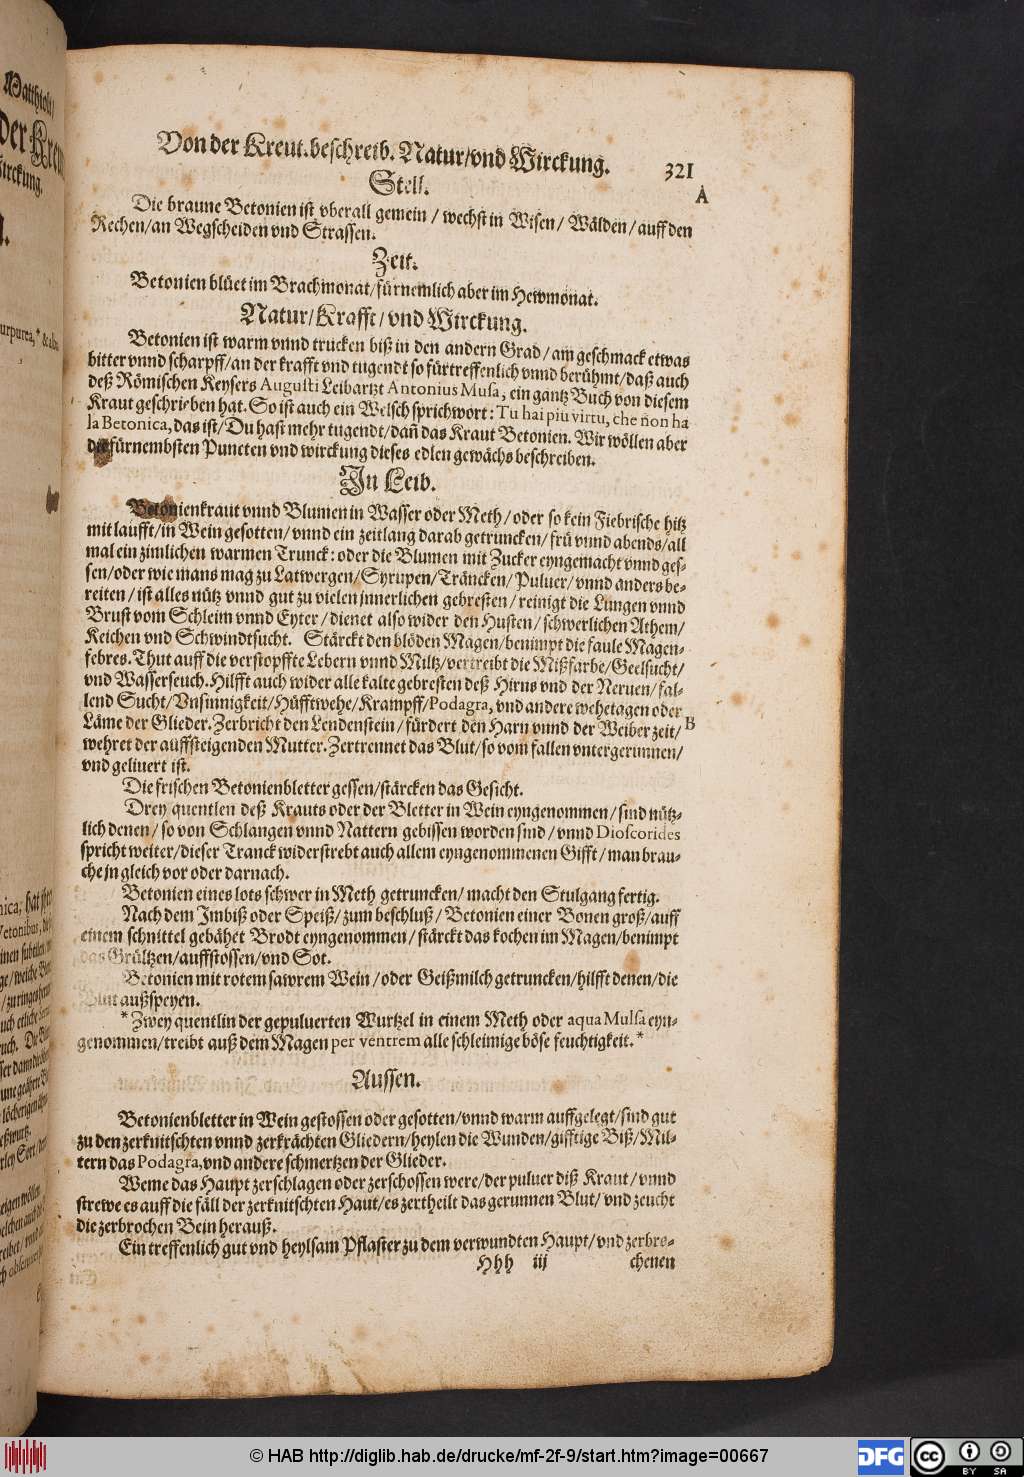 Von der Kreut. beschreib. Natur/vnd Wirckung. 321
Stell. A
Die braune Betonien ist vberall gemein / wechst in Wisen / Wälden / auff den
Rechen/an Wegscheiden vnd Strassen.
Zeit.
Betonien blüet im Brachmonat/fürnemlich aber im Hewmonat.
Natur/Krafft/vnd Wirckung.
Betonien ist warm vnnd trucken biß in den andern Grad/am geschmack etwas
bitter vnnd scharpff/an der krafft vnd tugendt so fürtreffenlich vnnd berühmt/daß auch
deß Römischen Keysers Augusti Leibartzt Antonius Musa, ein gantz Buch von diesem
Kraut geschrieben hat. So ist auch ein Welsch sprichwort: Tu hai piu virtu, che non ha
la Betonica, das ist/Du hast mehr tugendt/dañ das Kraut Betonien. Wir wöllen aber
die fürnembsten Puncten vnd wirckung dieses edlen gewächs beschreiben.
In Leib.
Betonienkraut vnnd Blumen in Wasser oder Meth/oder so kein Fiebrische hitz
mit laufft/in Wein gesotten/vnnd ein zeitlang darab getruncken/frü vnnd abends/all
mal ein zimlichen warmen Trunck: oder die Blumen mit Zucker eyngemacht vnnd ges-
sen/oder wie mans mag zu Latwergen/Syrupen/Träncken/Puluer/vnnd anders be-
reiten/ist alles nütz vnnd gut zu vielen jnnerlichen gebresten/reinigt die Lungen vnnd
Brust vom Schleim vnnd Eyter/dienet also wider den Husten/schwerlichen Athem/
Keichen vnd Schwindtsucht. Stärckt den blöden Magen/benimpt die faule Magen-
febres. Thut auff die verstopffte Lebern vnnd Miltz/vertreibt die Mißfarbe/Geelsucht/
vnd Wasserseuch. Hilfft auch wider alle kalte gebresten deß Hirns vnd der Neruen/fal-
lend Sucht/Vnsinnigkeit/Hüfftwehe/Krampff/Podagra, vnd andere wehetagen oder
Läme der Glieder. Zerbricht den Lendenstein/fürdert den Harn vnnd der Weiber zeit/ B
wehret der auffsteigenden Mutter. Zertrennet das Blut/so vom fallen vntergerunnen/
vnd geliuert ist.
Die frischen Betonienbletter gessen/stärcken das Gesicht.
Drey quentlen deß Krauts oder der Bletter in Wein eyngenommen/sind nütz-
lich denen/so von Schlangen vnnd Nattern gebissen worden sind/vnnd Dioscorides
spricht weiter/dieser Tranck widerstrebt auch allem eyngenommenen Gifft/man brau-
che jn gleich vor oder darnach.
Betonien eines lots schwer in Meth getruncken/macht den Stulgang fertig.
Nach dem Imbiß oder Speiß/zum beschluß/Betonien einer Bonen groß/auff
einem schnittel gebähet Brodt eyngenommen/stärckt das kochen im Magen/benimpt
das Grültzen/auffstossen/vnd Sot.
Betonien mit rotem sawrem Wein/oder Geißmilch getruncken/hilfft denen/die
Blut außspeyen.
* Zwey quentlin der gepuluerten Wurtzel in einem Meth oder aqua Mulsa eyn-
genommen/treibt auß dem Magen per ventrem alle schleimige böse feuchtigkeit. *
Aussen.
Betonienbletter in Wein gestossen oder gesotten/vnnd warm auffgelegt/sind gut
zu den zerknitschten vnnd zerkrächten Gliedern/heylen die Wunden/gifftige Biß/Mil-
tern das Podagra, vnd andere schmertzen der Glieder.
Weme das Haupt zerschlagen oder zerschossen were/der puluer diß Kraut/vnnd
strewe es auff die fäll der zerknitschten Haut/es zertheilt das gerunnen Blut/vnd zeucht
die zerbrochen Bein herauß.
Ein treffenlich gut vnd heylsam Pflaster zu dem verwundten Haupt/vnd zerbro-
Hhh iij chenen
© HAB http://diglib.hab.de/drucke/mf-2f-9/start.htm?image=00667
DFG
cc BY SA